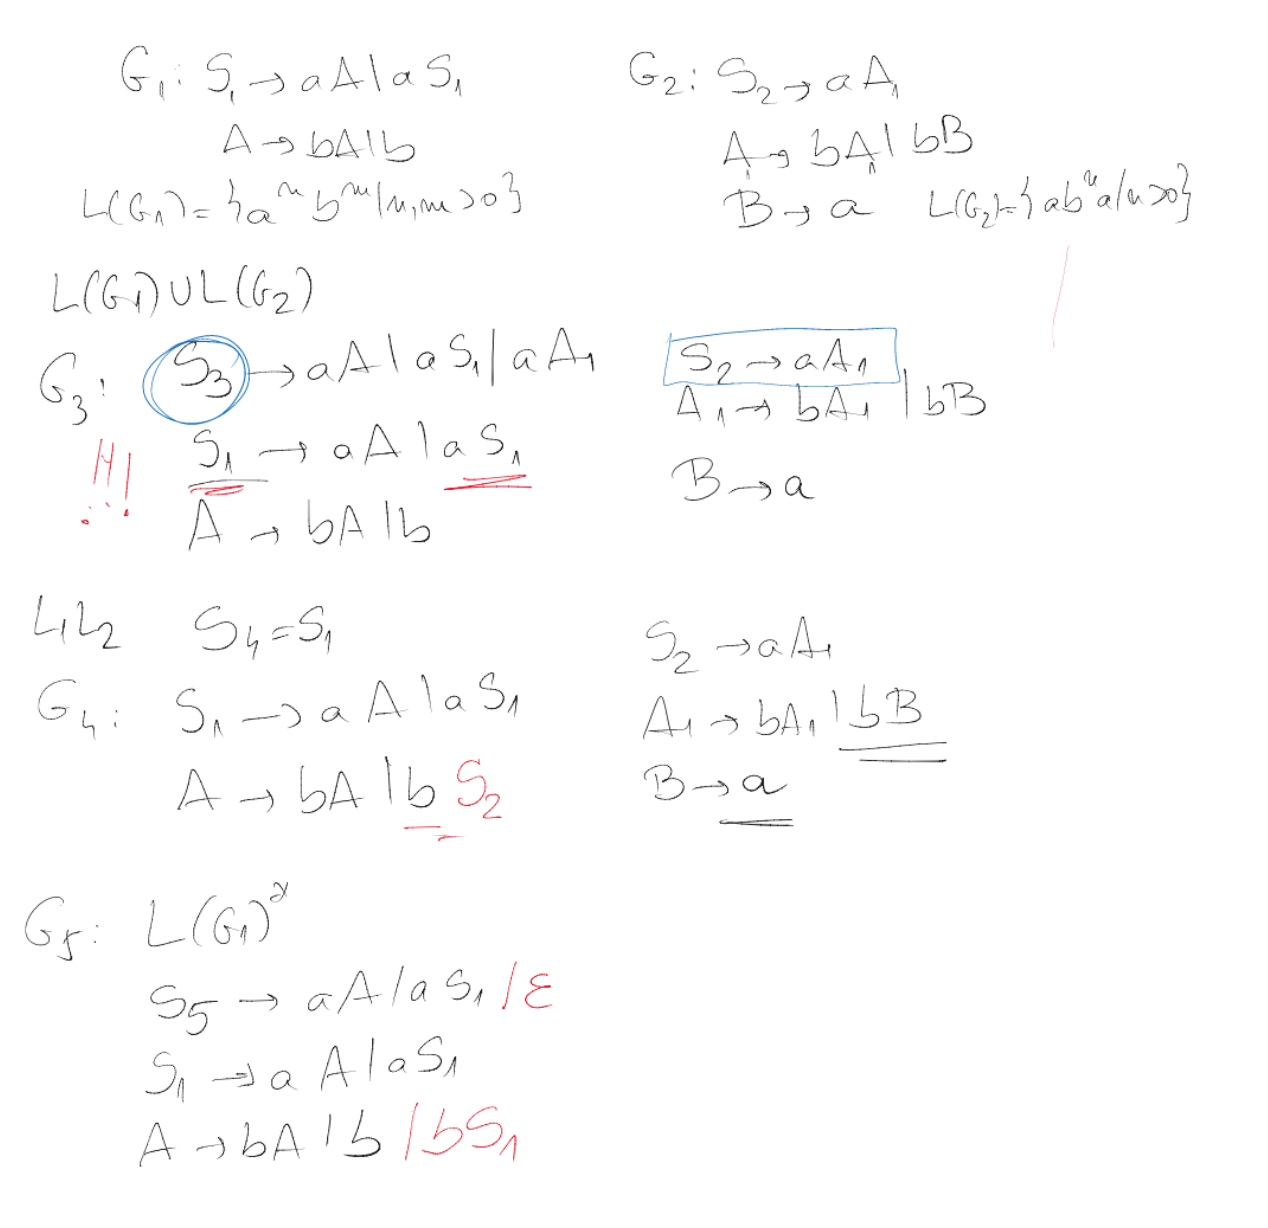 G₁: S₁ → aA | aS₁
A → bA | b
L(G₁) = {aⁿ bᵐ | n, m > 0}
G₂: S₂ → aA₁
A₁ → bA₁ | bB
B → a L(G₂) = {abⁿa | n > 0}
L(G₁) ∪ L(G₂)
G₃: S₃ → aA | aS₁ | aA₁
!!!
S₁ → aA | aS₁
A → bA | b
S₂ → aA₁
A₁ → bA₁ | bB
B → a
L₁L₂ S₄ = S₁
G₄: S₁ → aA | aS₁
A → bA | b S₂
S₂ → aA₁
A₁ → bA₁ | bB
B → a
G₅: L(G₁)*
S₅ → aA | aS₁ | ε
S₁ → aA | aS₁
A → bA | b | bS₁